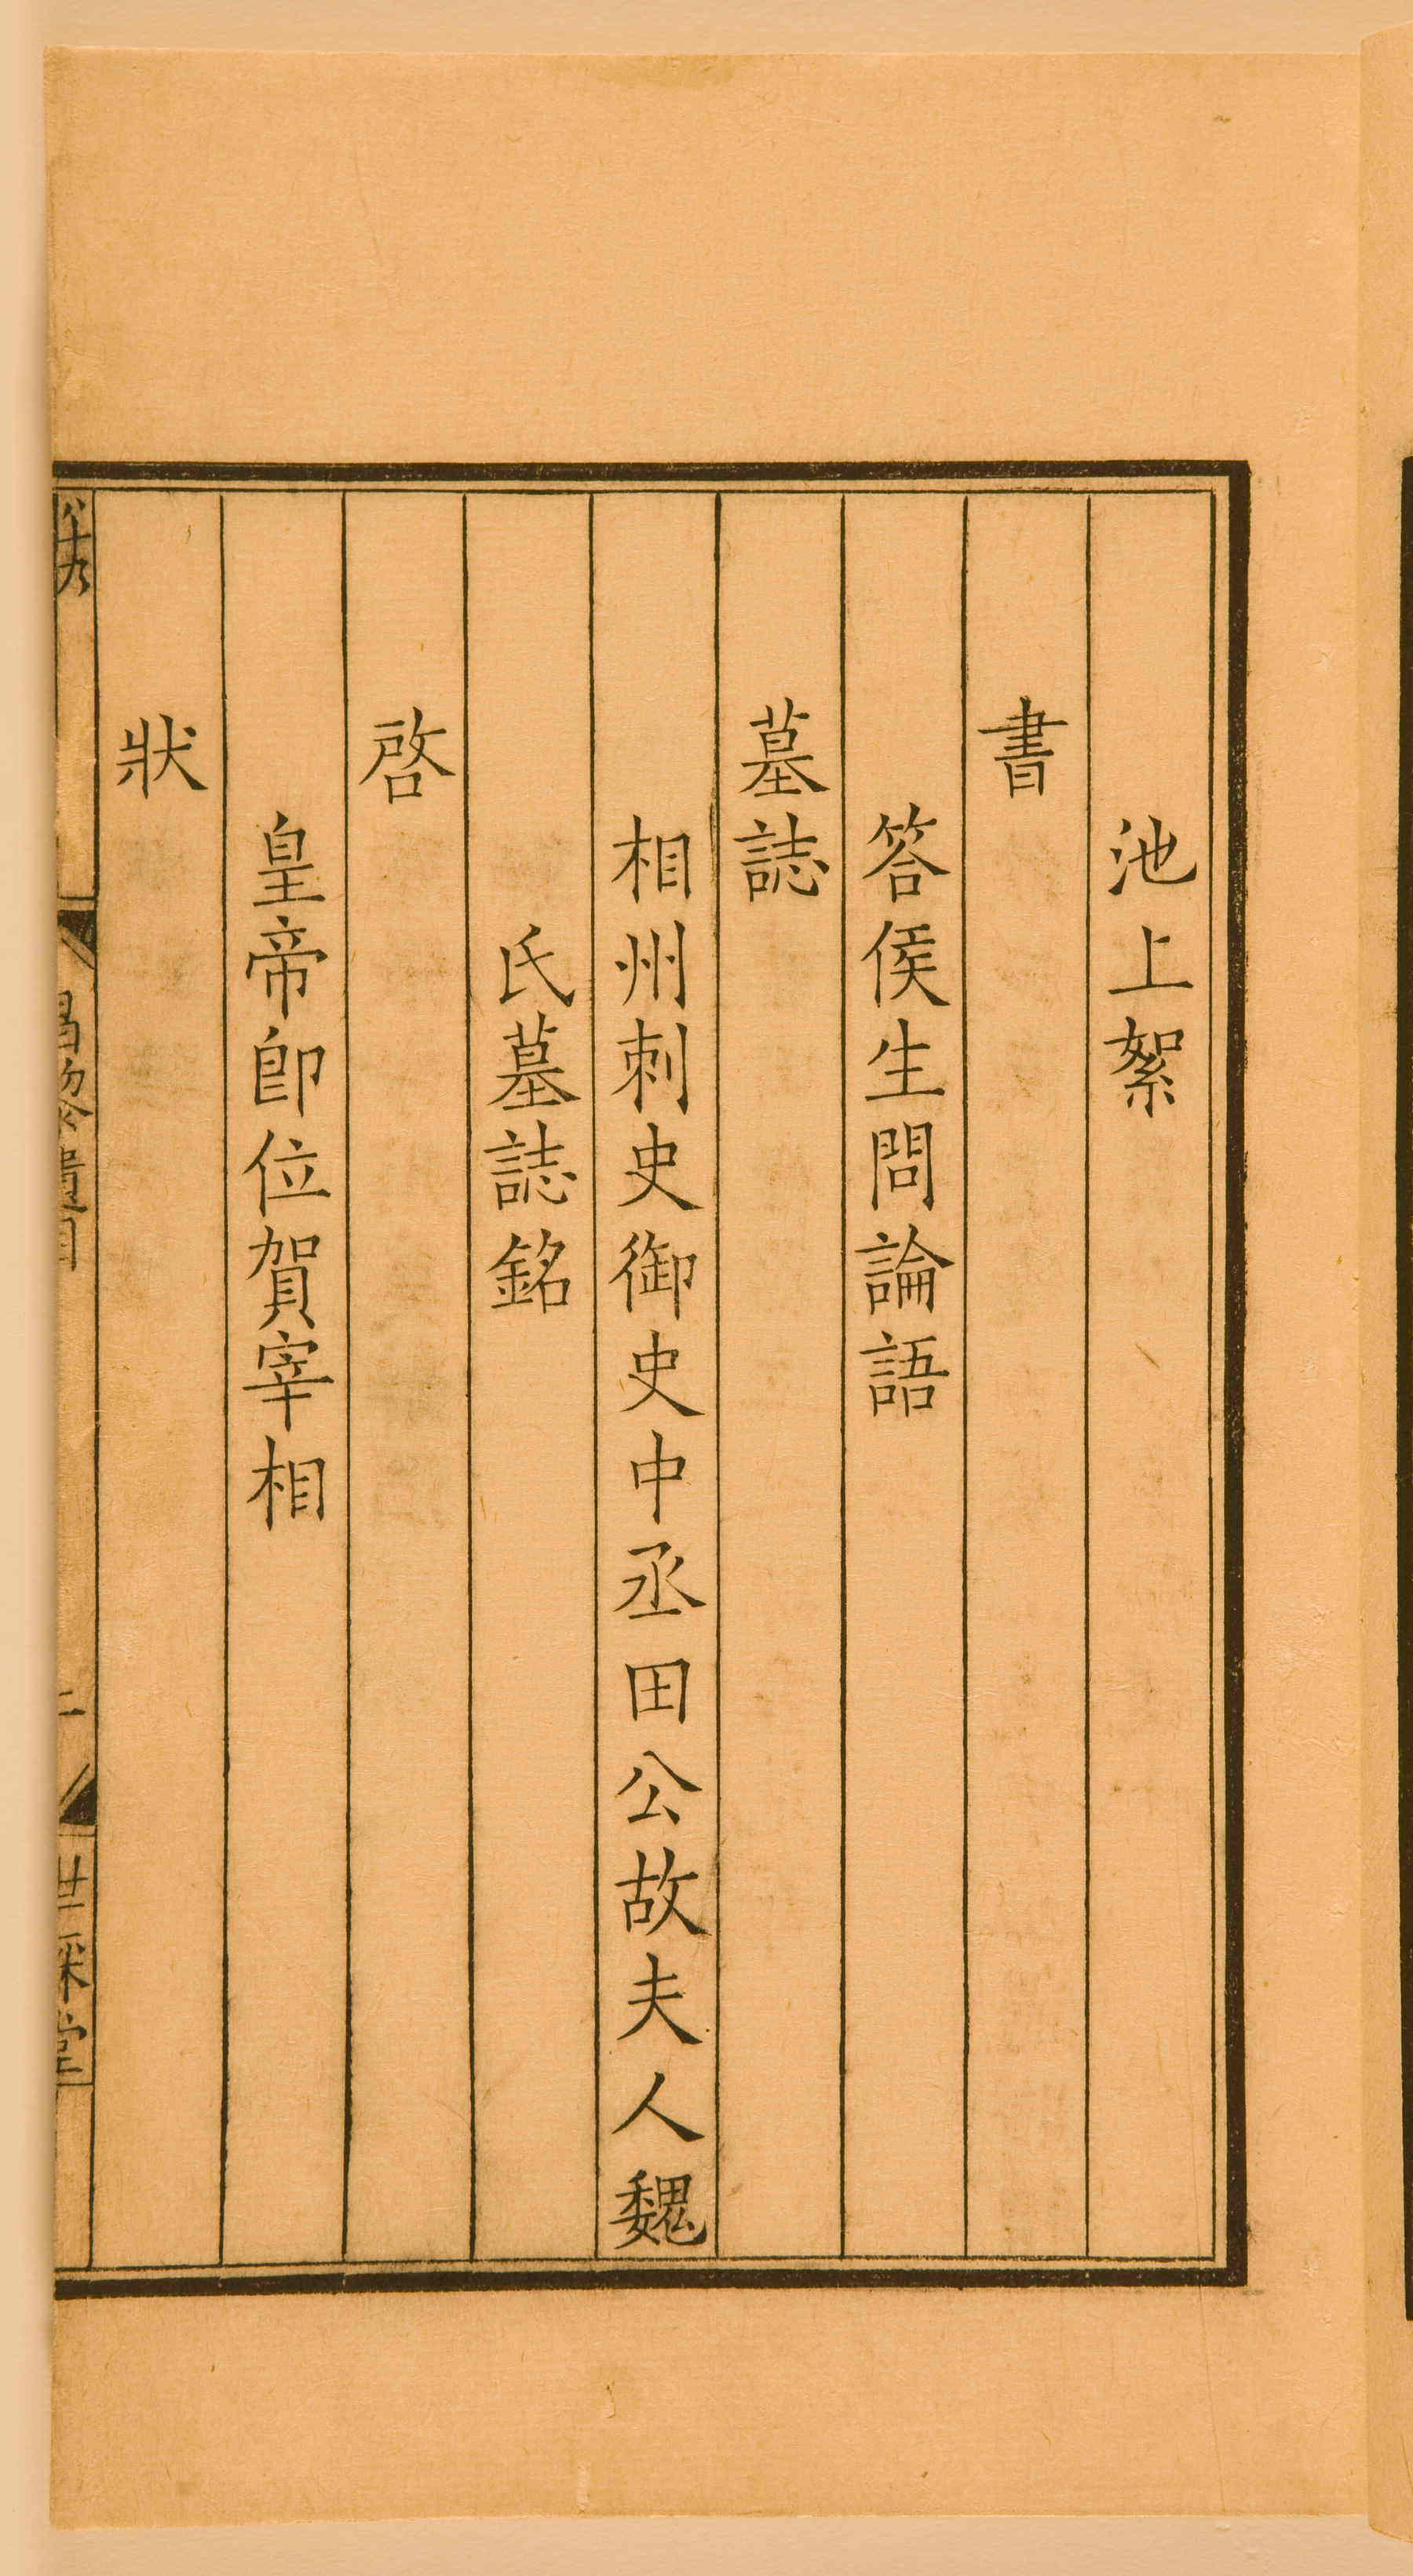 池上絮
書
答侯生問論語
墓誌
相州刺史御史中丞田公故夫人魏
氏墓誌銘
啓
皇帝卽位賀宰相
狀
世綵堂